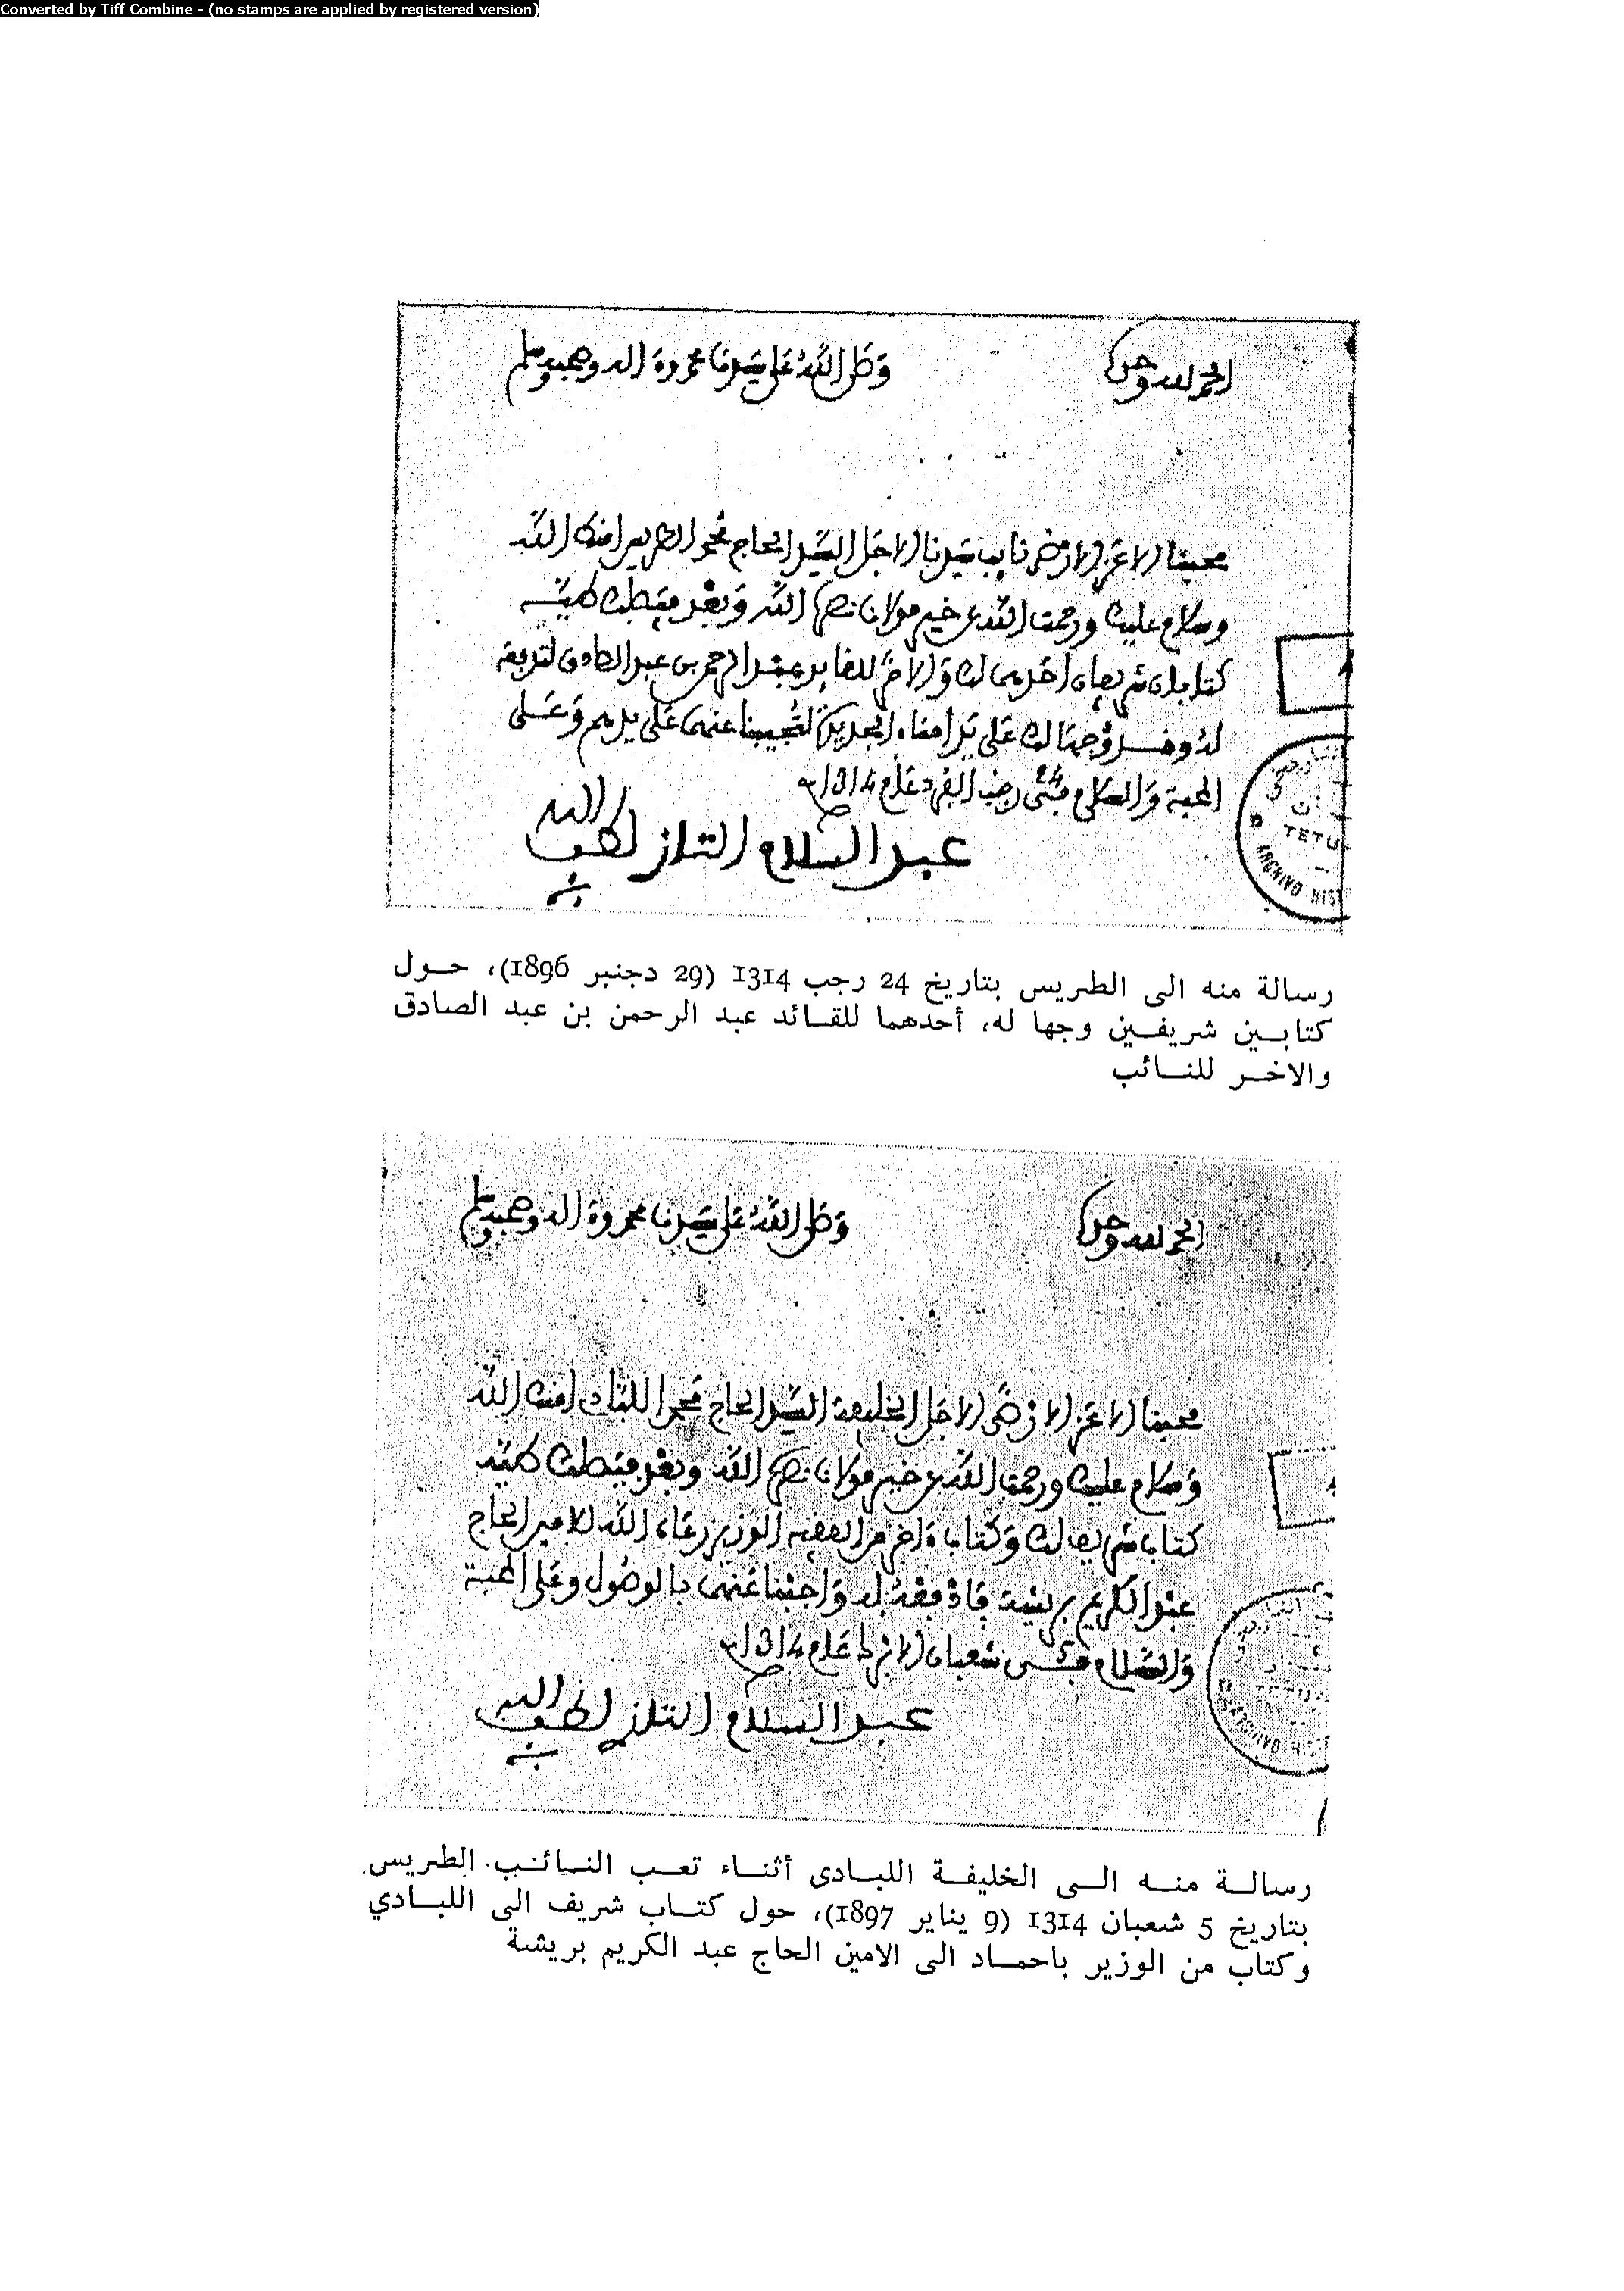 Converted by Tiff Combine - (no stamps are applied by registered version)
الحمد لله وحده
وصلى الله على سيدنا محمد وءاله وصحبه وسلم
محبنا الاعز الارضى نايب سيدنا الاجل السيد الحاج محمد الطريس امنك الله
وسلام عليك ورحمت الله عن خير مولانا نصره الله وبعد فيصلك طيه
كتابان شريفان احدهما لك والاخر للقايد عبد الرحمن بن عبد الصادق لتدفعه
له وقد وجهنا لك على يد امناء الجديدة لتجيبنا عنهما على يدهم وعلى
المحبة والسلام في 24 رجب الفرد عام 1314
عبد السلام التازي لطف الله به
TETU
ARCHIVO HIS
رسالة منه الى الطريس بتاريخ 24 رجب 1314 (29 دجنبر 1896)، حول
كتابين شريفين وجها له، أحدهما للقائد عبد الرحمن بن عبد الصادق
والاخر للنائب
الحمد لله وحده
وصلى الله على سيدنا محمد وءاله وصحبه وسلم
محبنا الاعز الارضى الاجل الخليفة السيد الحاج محمد اللبادي امنك الله
وسلام عليك ورحمت الله عن خير مولانا نصره الله وبعد فيصلك طيه
كتاب شريف لك وكتاب ءاخر من الفقيه الوزير رعاه الله للامين الحاج
عبد الكريم بريشة فادفعه له واجبنا عنهما بالوصول وعلى المحبة
والسلام في شعبان الابرك عام 1314
عبد السلام التازي لطف الله به
TETUA
ARCHIVO HIS
رسالة منه الى الخليفة اللبادى أثناء تعب النائب الطريس
بتاريخ 5 شعبان 1314 (9 يناير 1897)، حول كتاب شريف الى اللبادي
وكتاب من الوزير باحماد الى الامين الحاج عبد الكريم بريشة